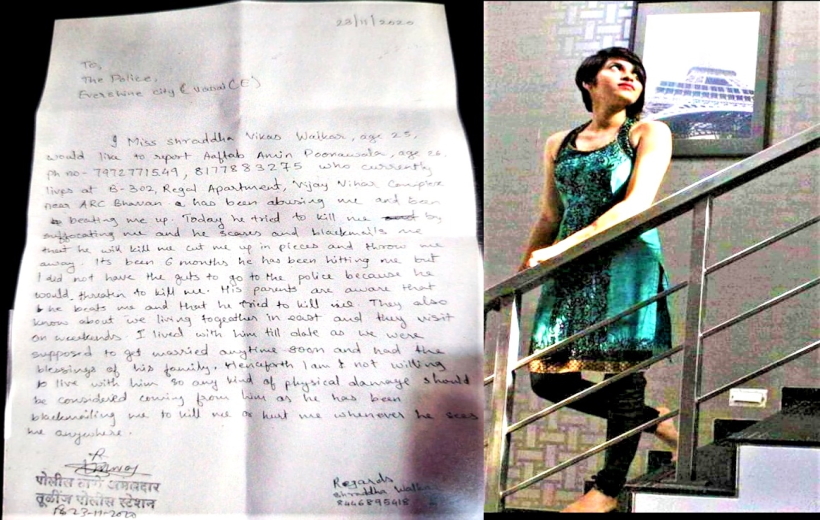 23/11/2020
To,
The Police,
Evershine city (Vasai (E)
I Miss Shraddha Vikas Walkar, age 25,
would like to report Aaftab Amin Poonawala, age 26
ph no- 7972771549, 8177883275 who currently
lives at B-302, Regal Apartment, Vijay Vihar Complex
near ARC Bhavan has been abusing me and been
beating me up. Today he tried to kill me by
suffocating me and he scares and blackmails me
that he will kill me cut me up in pieces and throw me
away. Its been 6 months he has been hitting me but
I did not have the guts to go to the police because he
would threaten to kill me. His parents are aware that
he beats me and that he tried to kill me. They also
know about we living together in east and they visit
on weekends. I lived with him till date as we were
supposed to get married anytime soon and had the
blessings of his family. Henceforth I am not willing
to live with him so any kind of physical damage should
be considered coming from him as he has been
blackmailing me to kill me or hurt me whenever he sees
me anywhere.
पोलीस ठाणे अंमलदार
तूळींज पोलीस स्टेशन
23-11-2020
Regards
Shraddha Walkar
8446895418